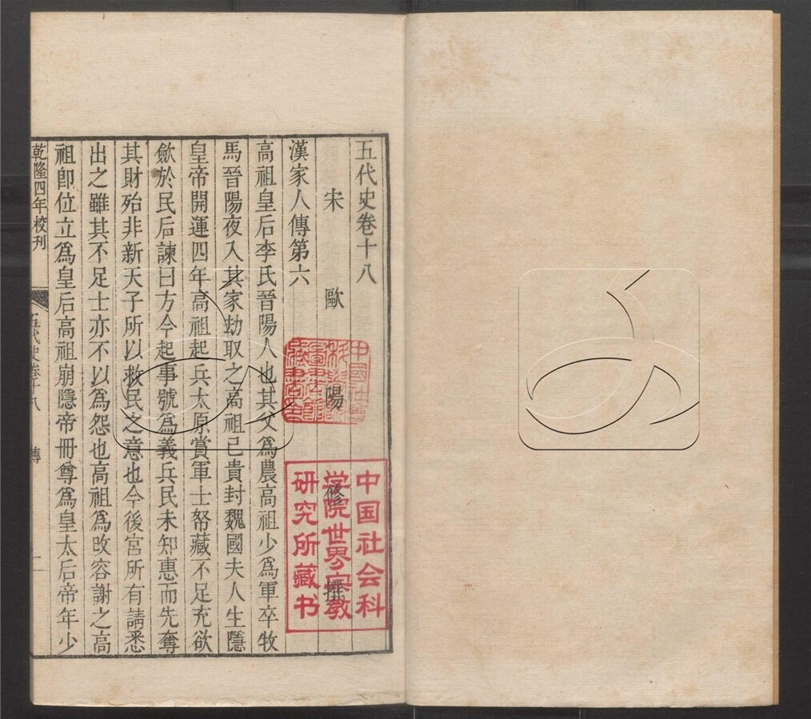 五代史卷十八
宋 歐 陽 修 撰
漢家人傳第六
高祖皇后李氏晉陽人也其父爲農高祖少爲軍卒牧
馬晉陽夜入其家劫取之高祖已貴封魏國夫人生隱
皇帝開運四年高祖起兵太原賞軍士帑藏不足充欲
斂於民后諫曰方今起事號爲義兵民未知惠而先奪
其財殆非新天子所以救民之意也今後宮所有請悉
出之雖其不足士亦不以爲怨也高祖爲改容謝之高
祖卽位立爲皇后高祖崩隱帝冊尊爲皇太后帝年少
乾隆四年校刊 五代史卷十八 傳 一
中国社会科
学院世界宗教
研究所藏书